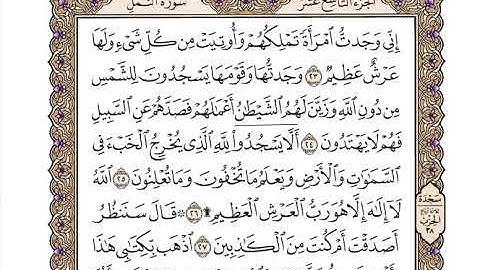 الجزء التاسع عشر سورة النمل
إِنِّي وَجَدتُّ ٱمْرَأَةً تَمْلِكُهُمْ وَأُوتِيَتْ مِن كُلِّ شَيْءٍ وَلَهَا
عَرْشٌ عَظِيمٌ ٢٣ وَجَدتُّهَا وَقَوْمَهَا يَسْجُدُونَ لِلشَّمْسِ
مِن دُونِ ٱللَّهِ وَزَيَّنَ لَهُمُ ٱلشَّيْطَٰنُ أَعْمَٰلَهُمْ فَصَدَّهُمْ عَنِ ٱلسَّبِيلِ
فَهُمْ لَا يَهْتَدُونَ ٢٤ أَلَّا يَسْجُدُوا۟ لِلَّهِ ٱلَّذِي يُخْرِجُ ٱلْخَبْءَ فِي
ٱلسَّمَٰوَٰتِ وَٱلْأَرْضِ وَيَعْلَمُ مَا تُخْفُونَ وَمَا تُعْلِنُونَ ٢٥ ٱللَّهُ
لَآ إِلَٰهَ إِلَّا هُوَ رَبُّ ٱلْعَرْشِ ٱلْعَظِيمِ ۩ ٢٦ قَالَ سَنَنظُرُ
أَصَدَقْتَ أَمْ كُنتَ مِنَ ٱلْكَٰذِبِينَ ٢٧ ٱذْهَب بِّكِتَٰبِي هَٰذَا
سجدة
الحزب
٣٨